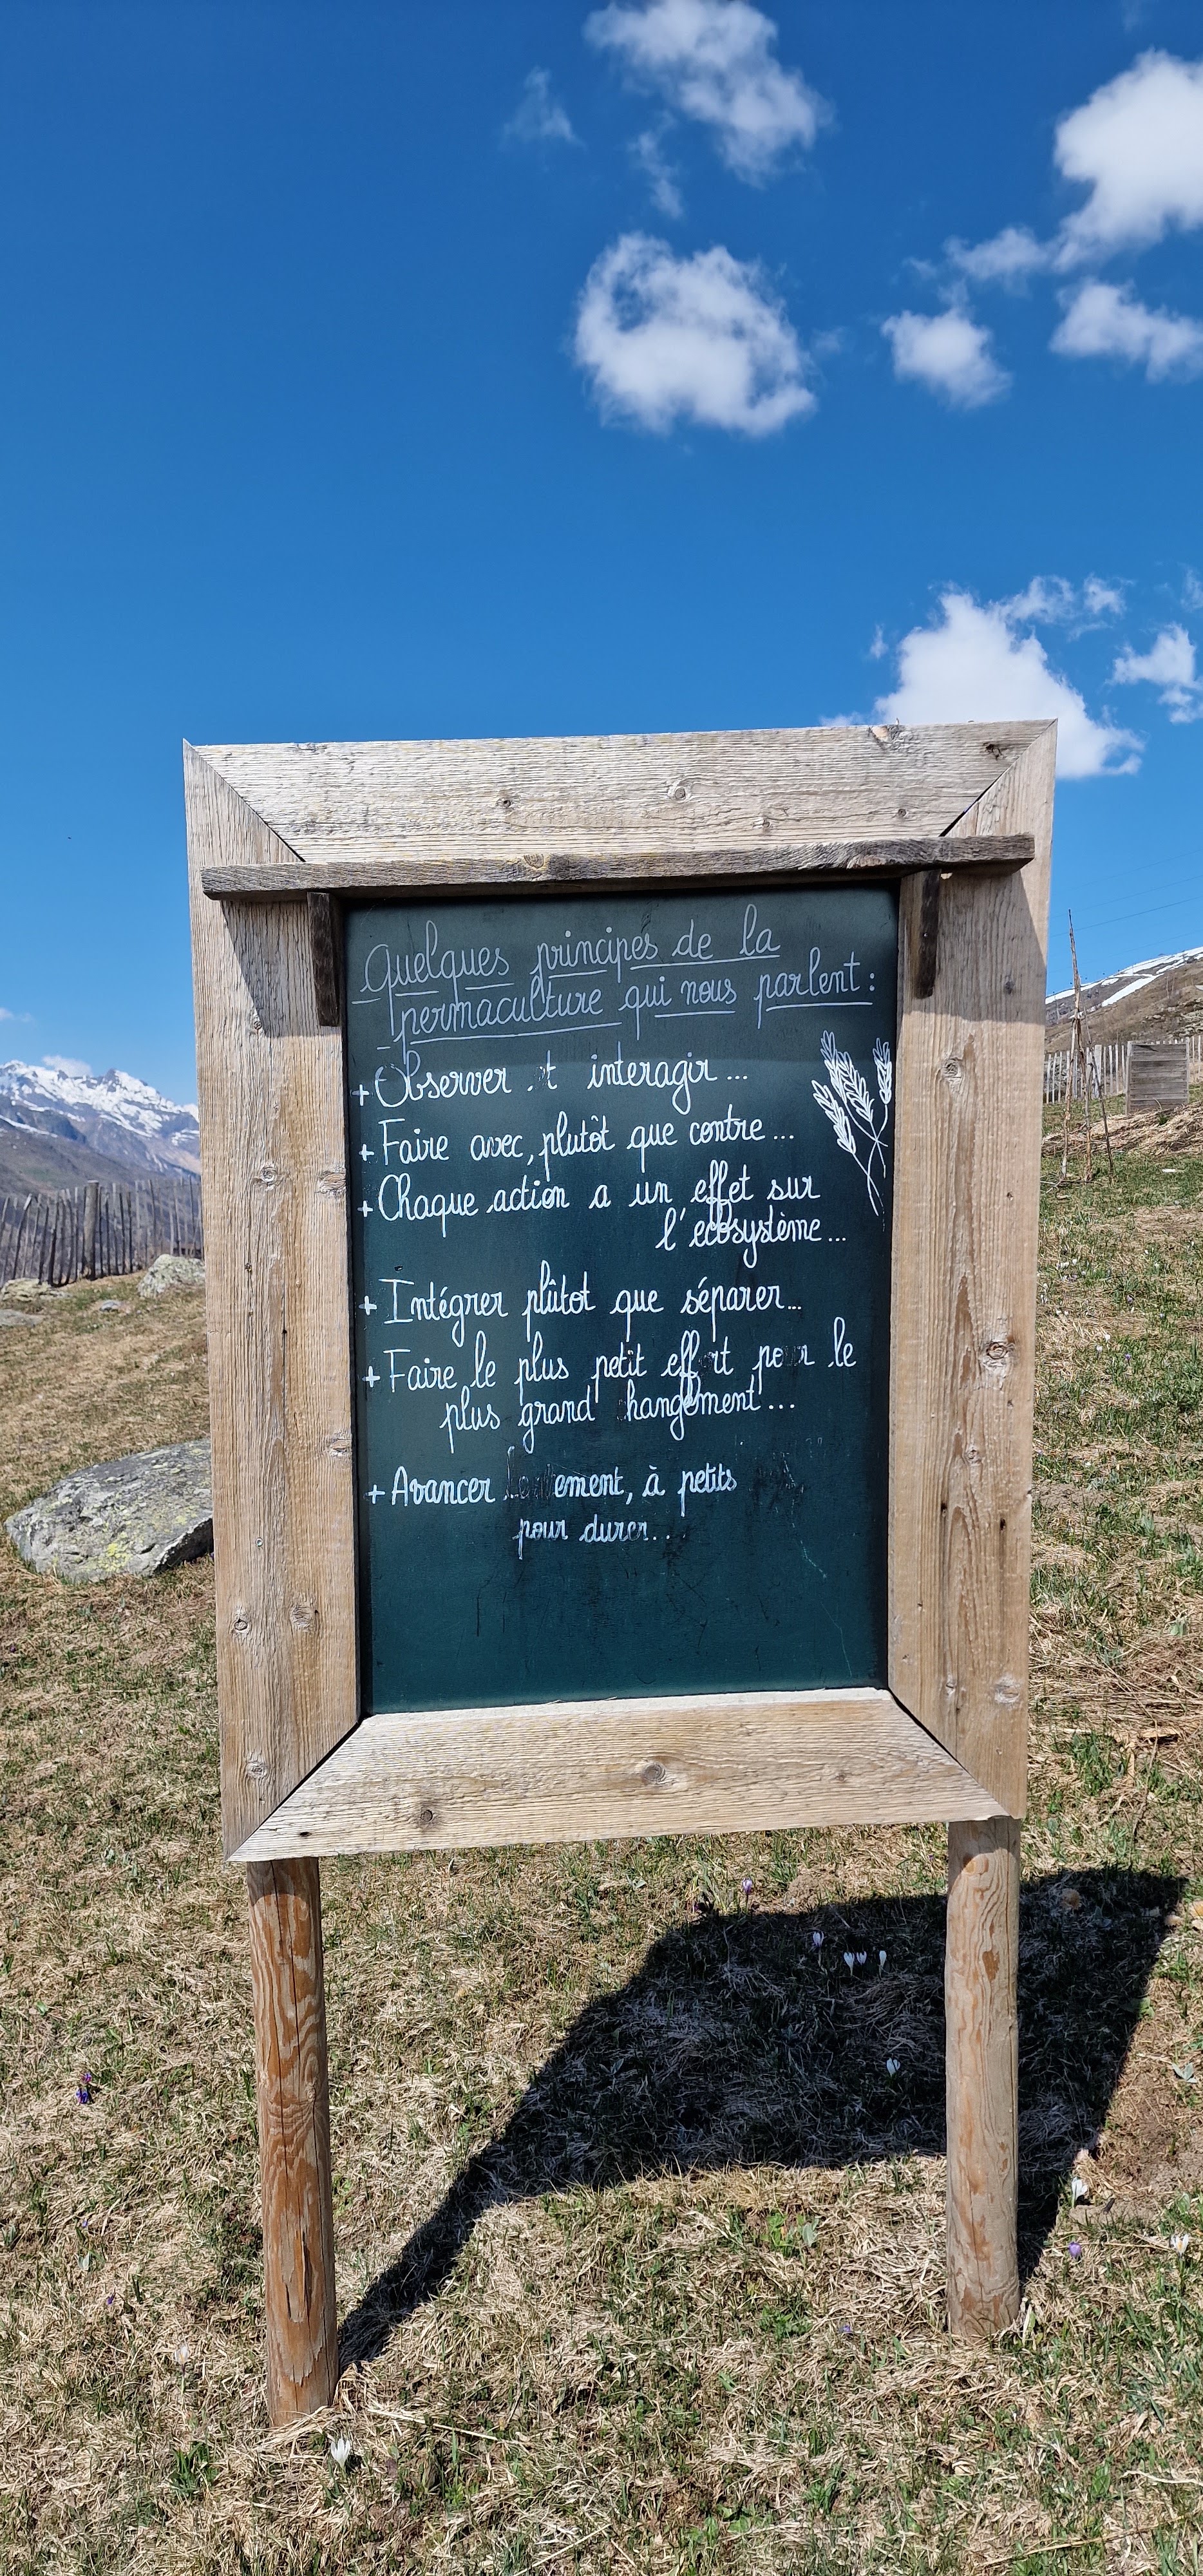 Quelques principes de la
permaculture qui nous parlent :
+ Observer et interagir...
+ Faire avec, plutôt que contre...
+ Chaque action a un effet sur
l'écosystème...
+ Intégrer plûtot que séparer...
+ Faire le plus petit effort pour le
plus grand changement...
+ Avancer lentement, à petits
pour durer...